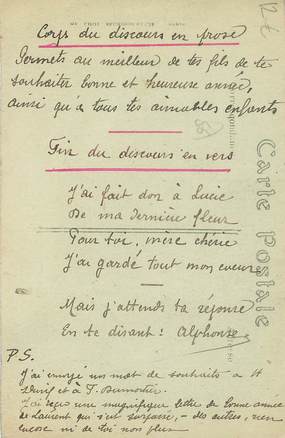 Corps du discours en prose
Permets au meilleur de tes fils de te
souhaiter bonne et heureuse année,
ainsi qu'à tous tes aimables enfants
Fin du discours en vers
J'ai fait don à Lucie
De ma dernière fleur
Pour toi, mère chérie
J'ai gardé tout mon coeur
Mais j'attends ta réponse
En te disant : Alphonse
P.S.
J'ai envoyé nos mots de souhaits à H
et à F. Dumortier
J'ai reçu une magnifique lettre de bonne année
de Laurent qui s'est surpassé, – des autres, rien
encore ni de toi non plus
Carte Postale
12 €